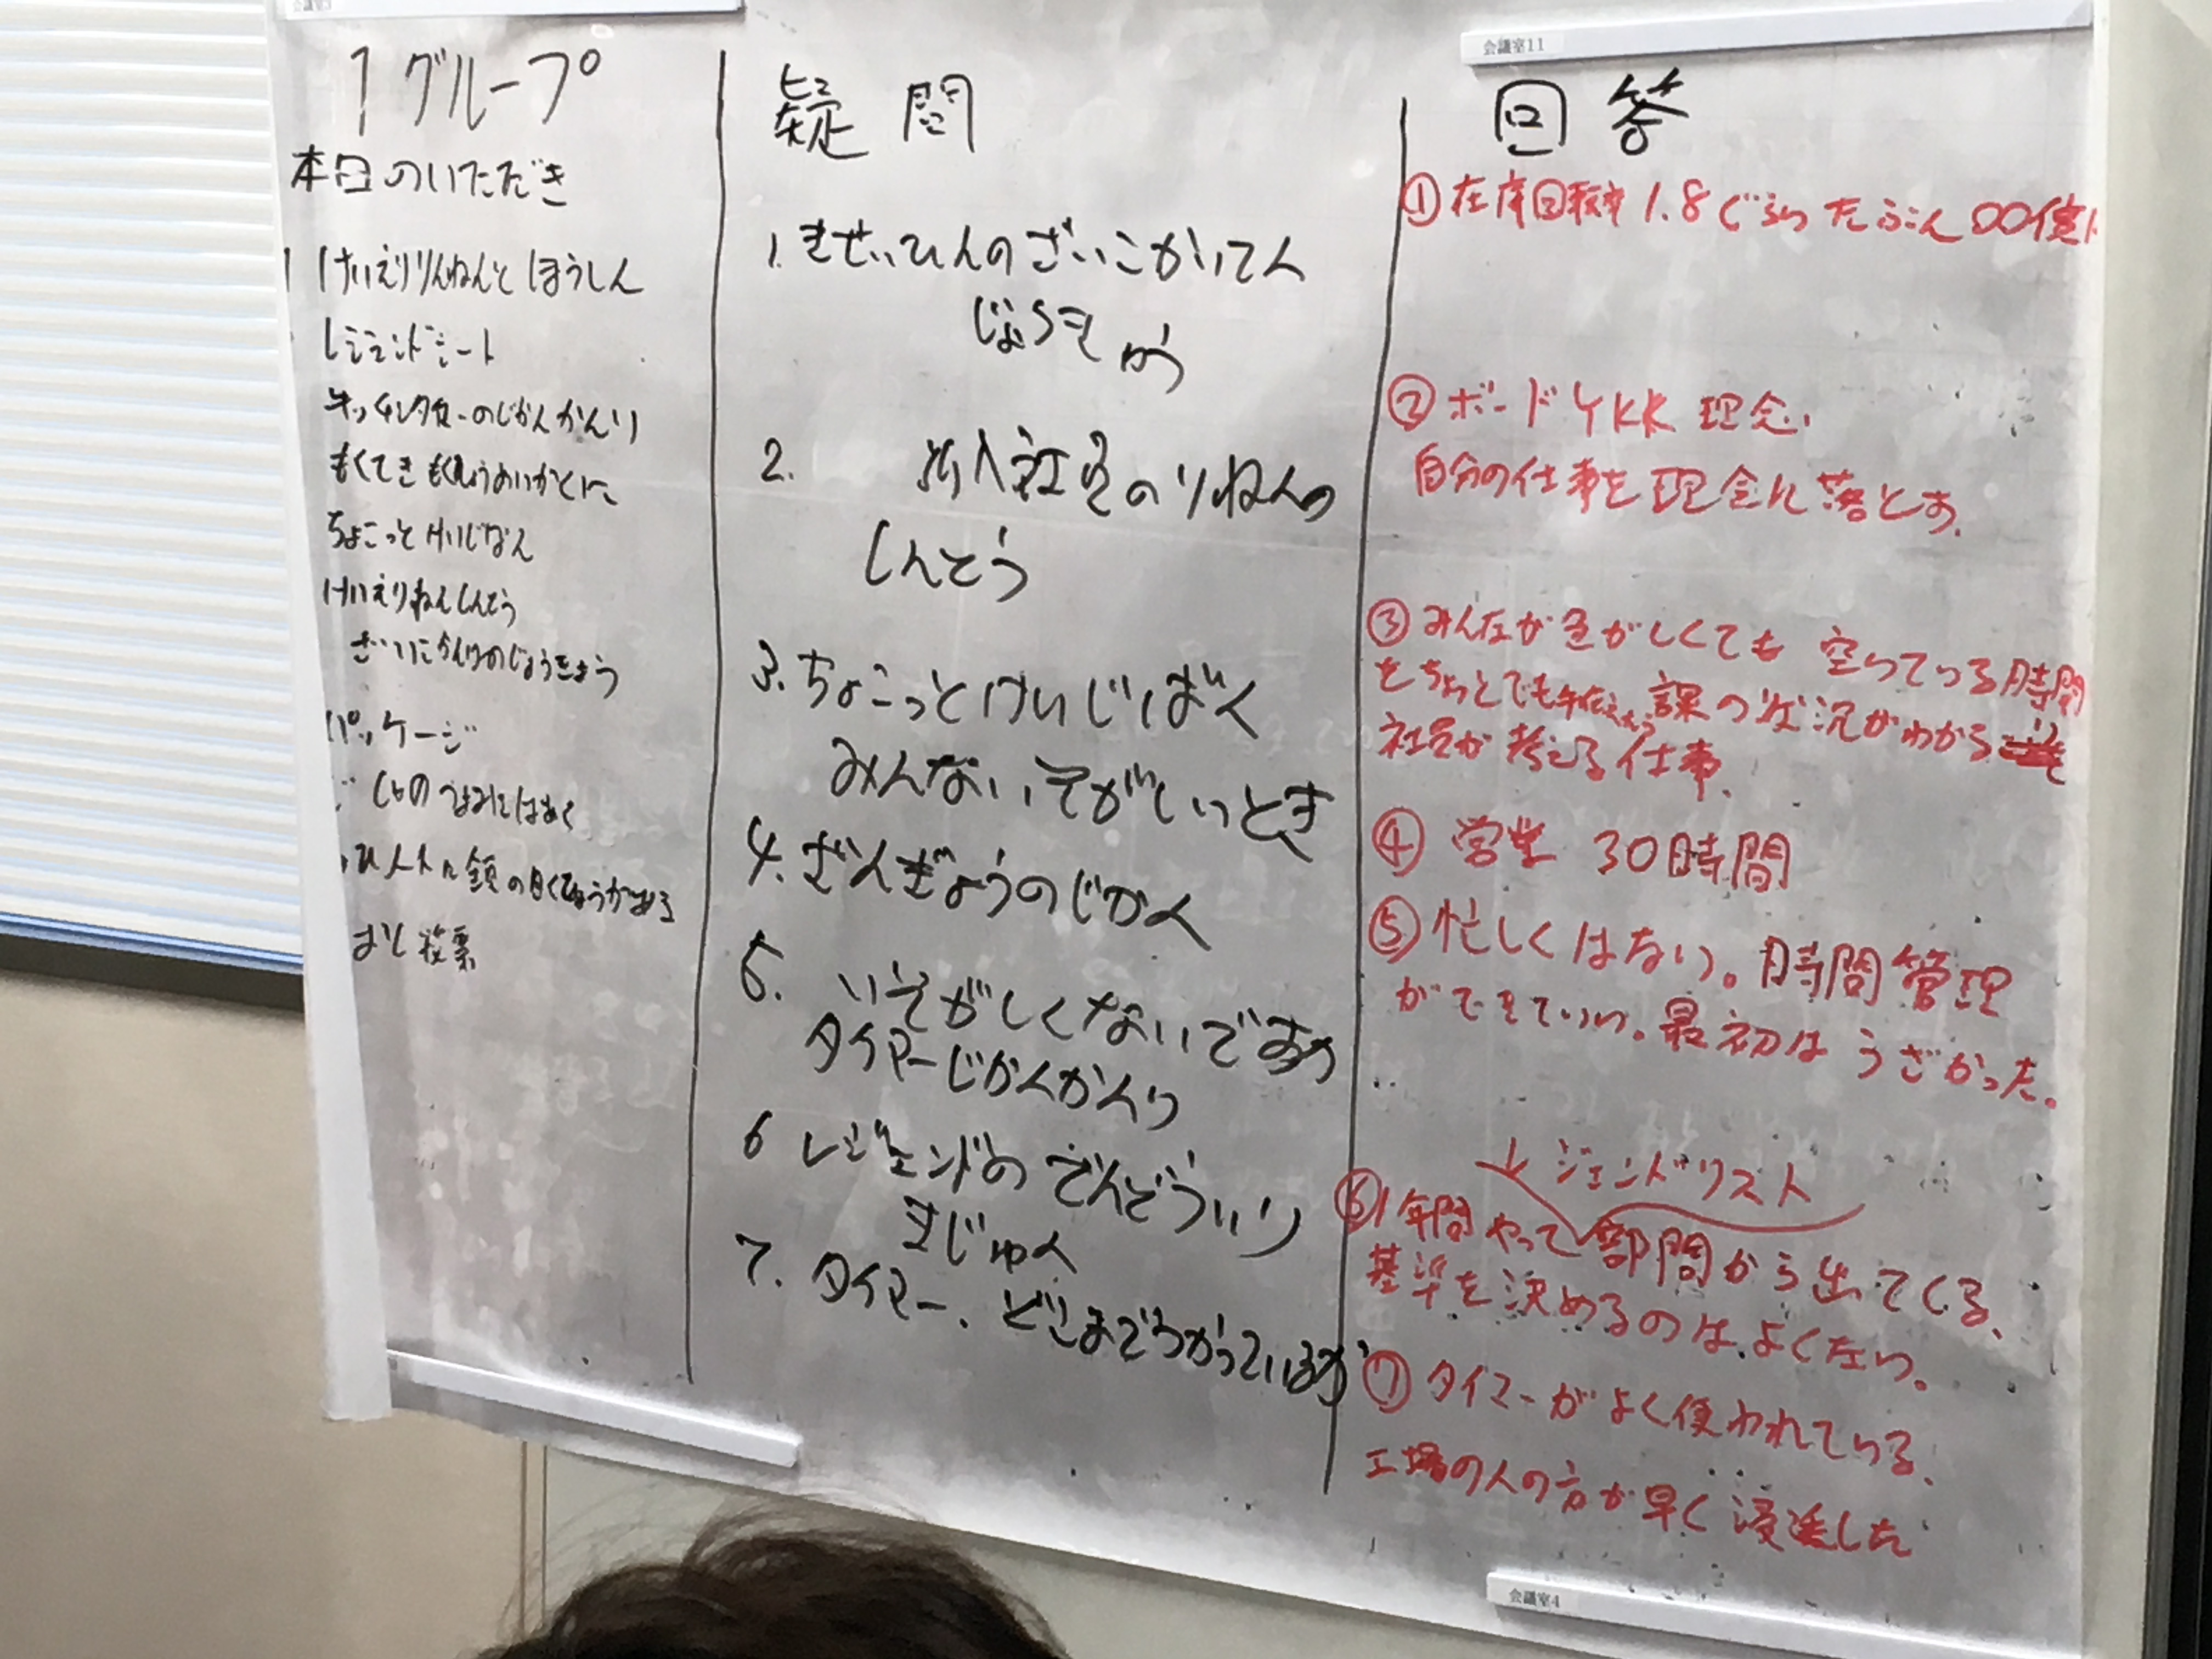 会議室11
1グループ
本日のいただき
けいえいりねんと ほうしん
レジェンドシート
キッチンタイマーのじかんかんり
もくてき もくひょう
ちょこっとけいじばん
けいえいりねんしんとう
ざいこかんりのじょうきょう
パッケージ
投票
疑問
1. きせいひんのざいこかいてん
じょうきょう
2. 社員のりねんの
しんとう
3. ちょこっとけいじばん
みんないそがしいとき
4. ざんぎょうのじかん
5. いそがしくないですか
タイマーじかんかんり
6 レジェンドの でんどういり
きじゅん
7. タイマー、どこまでつかっているか
回答
① 在庫回転率 1.8ぐらい たぶん 〇〇億
② ボード YKK 理念、
自分の仕事を理念に落とす。
③ みんなが急がしくても 空いている時間
をちょっとでも 課の状況がわかる
社員が考える仕事、
④ 営業 30時間
⑤ 忙しくはない。時間管理
ができていい。最初は うざかった。
レジェンドリスト
⑥ 1年間やって 部門から出てくる、
基準を決めるのは、よくない。
⑦ タイマーがよく使われている、
工場の人の方が早く浸透した
会議室4